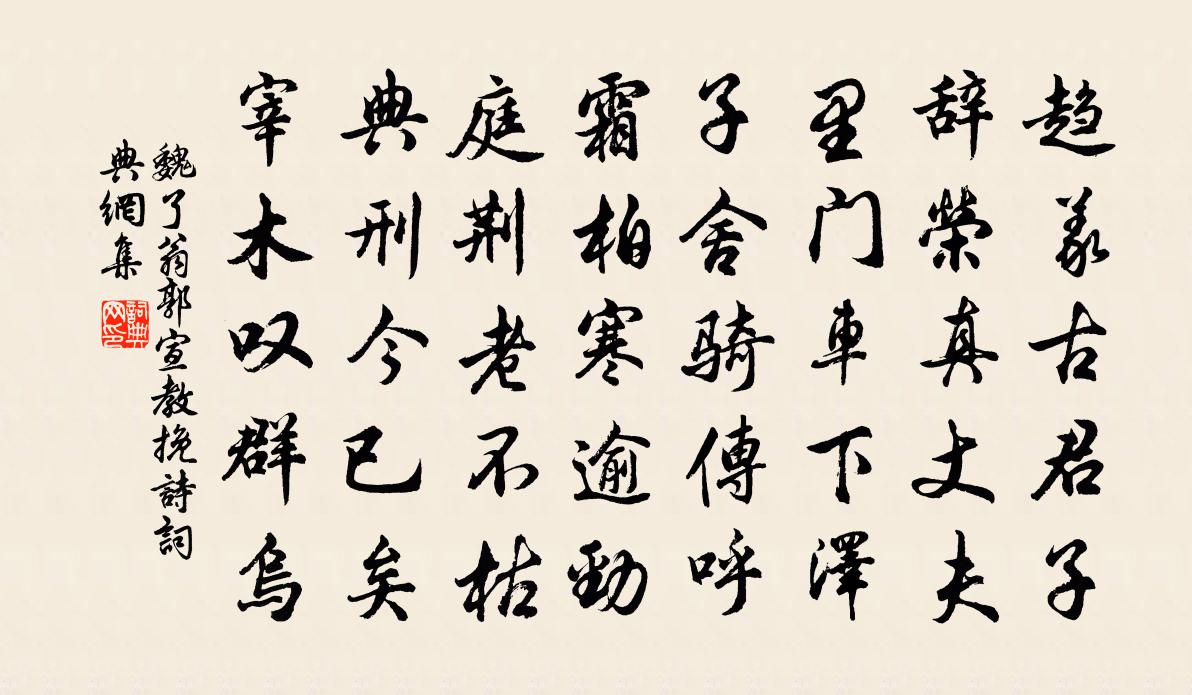 趋義古君子
辞榮真丈夫
里门車下澤
子舍騎傳呼
霜柏寒逾勁
庭荆老不枯
典刑今已矣
宰木叹群烏
魏了翁郭宣教挽詩詞
典網集
詞典网印